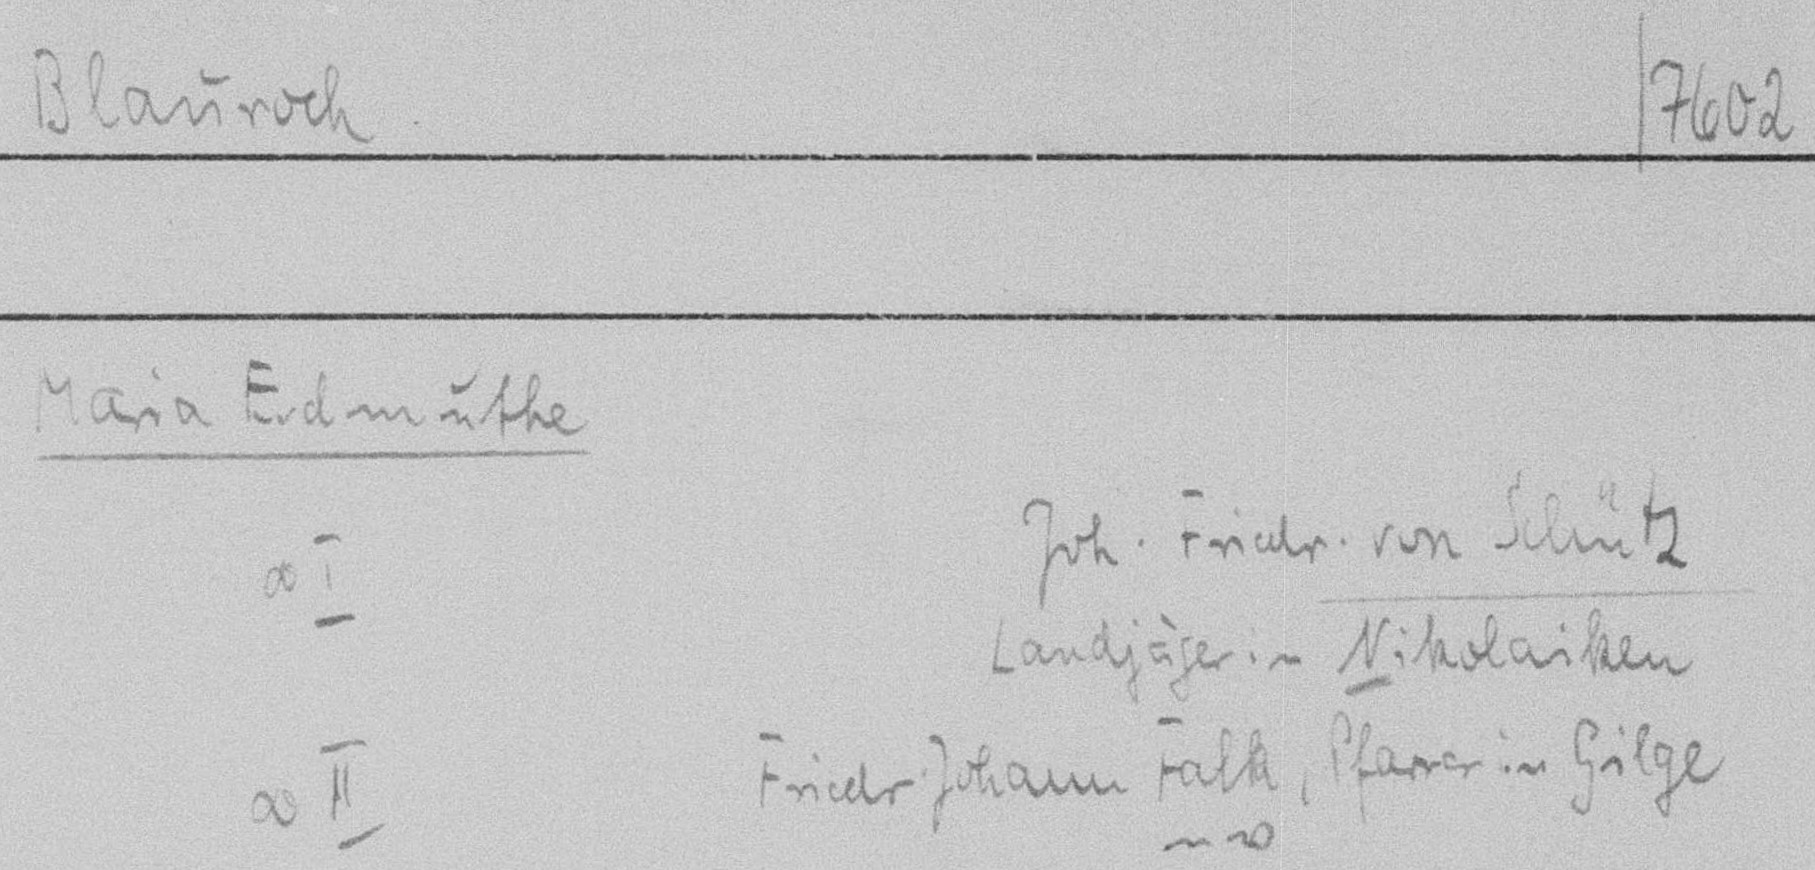 Blaurock 7602
Maria Erdmuthe
∞ I Joh. Friedr. von Schütz
Landjäger in Nikolaiken
∞ II Friedr. Johann Falk, Pfarrer in Gilge